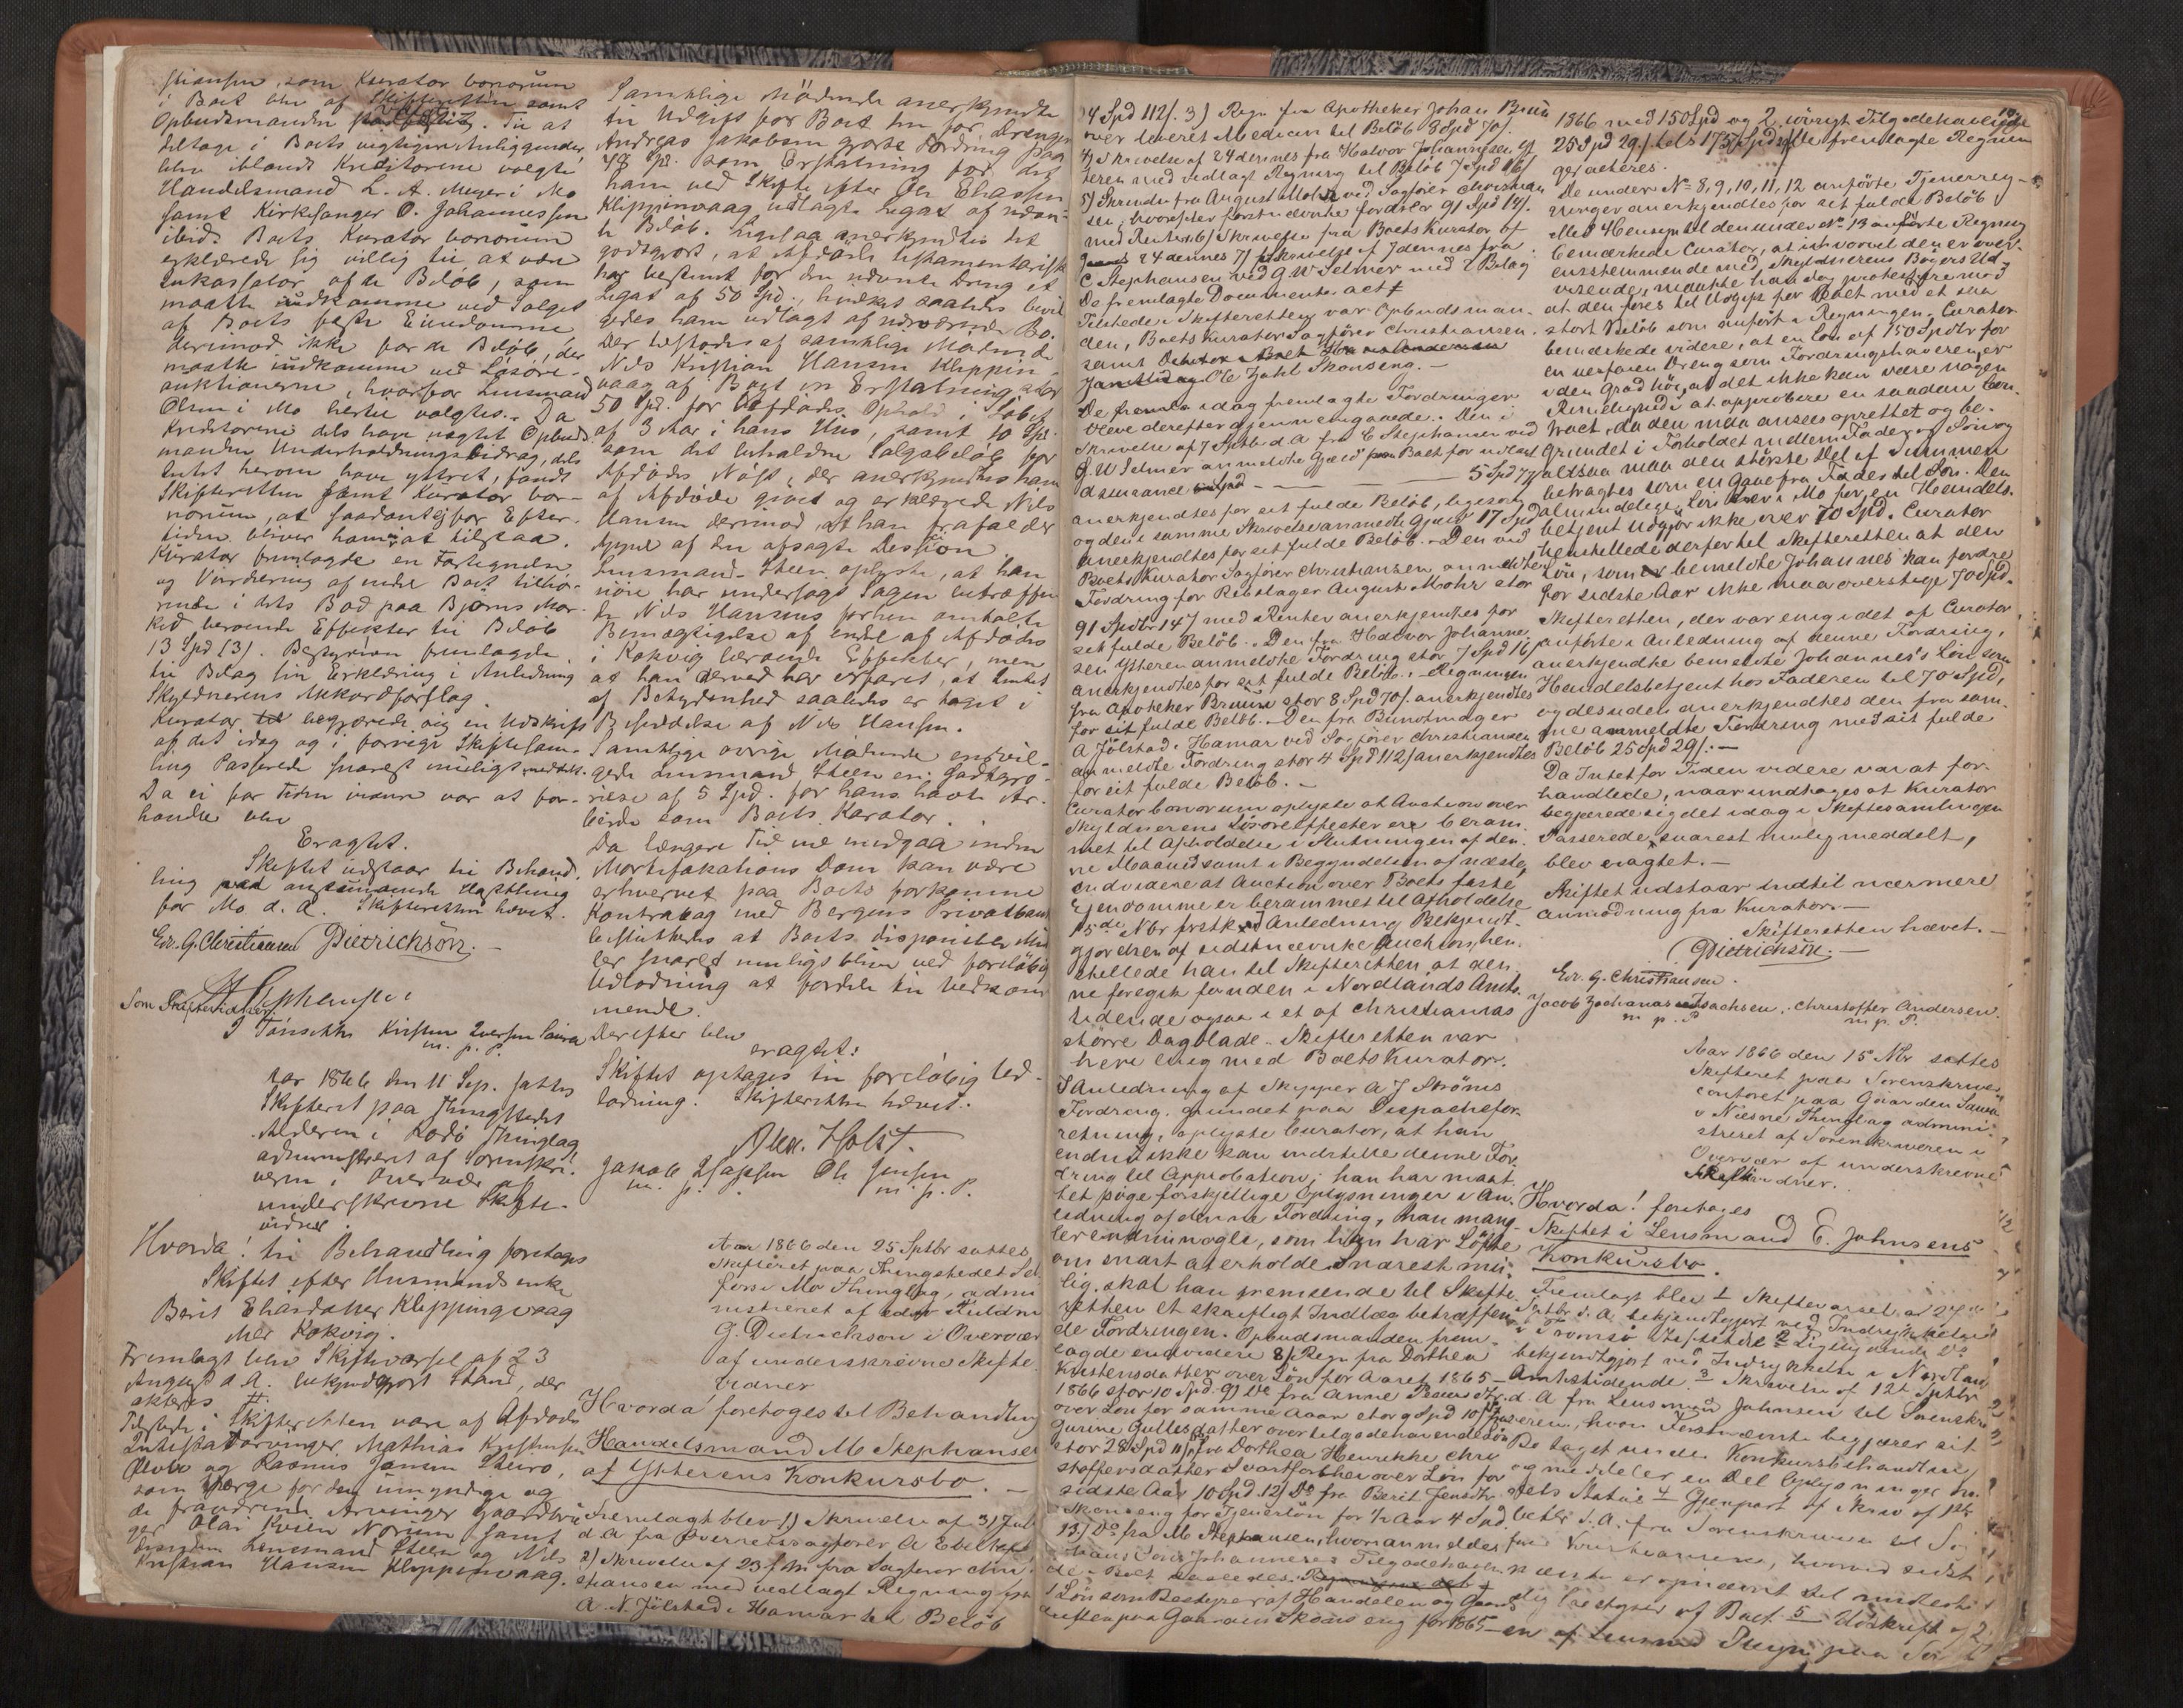 stiansen, som Kurator bonorum
i Boet blev af Skifteretten samt
Opbudsmanden. Til at
deltage i Boets vigtigere Anliggender
blev iblandt Kreditorerne valgte
Handelsmand L. A. Meyer i Mo
samt Kirkesanger O. Johannessen
ibid. Boets Kurator bonorum
erklærede sig villig til at være
Inkassator af de Beløb, som
maatte indkomme ved Salget
af Boets faste Eiendomme
derimod ikke for de Beløb, der
maatte indkomme ved Løsøre-
auktionerne, hvorfor Lensmand
Olsen i Mo hertil valgtes. Da
Kreditorerne dels have nægtet Opbuds-
manden Underholdningsbidrag, dels
Intet herom have yttret, fandt
Skifteretten samt Kurator bo-
norum, at saadant ei for Efter-
tiden bliver ham at tilstaa.
Kurator fremlagde en Fortegnelse
og Vurdering af endel Boet tilhø-
rende i dets Bod paa Bjørns Mar-
ked beroende Effekter til Beløb
13 Spd 13 /. Bestyreren fremlagde
til Bilag sin Erklæring i Anledning
Skyldnerens Akkordforslag.
Kurator begjærede sig en Udskrift
af det idag og i forrige Skiftesam-
ling Passerede snarest muligt meddelt.
Da ei for Tiden videre var at for-
handle blev
Eragtet.
Skiftet udstaar til Behand-
ling ved anstundende Høstthing
for Mo d. A. Skifteretten hævet.
Edv. G. Christiansen Dietrichson.
Som Skiftevidner:
Kristen Iversen
m. p. P.
Aar 1866 den 11 Sep. sattes
Skifteret paa Thingstedet
i Rødø Thinglag
administreret af Sorenskri-
veren i Overvær af
underskrevne Skifte-
vidner.
Hvorda! til Behandling foretoges
Skiftet efter Husmandsenke
Berit Eliasdatter Klippingvaag
eller Kokvig.
Fremlagt blev Skiftevarsel af 23
August d. A. bekjendtgjort Stand, der
akteres #.
Tilstede i Skifteretten vare af Afdødes
Intestatarvinger Mathias Kristensen
og Rasmus Jonsen
som Værge for den umyndige og
de fraværende Arvinger Gaardbru-
ger Olai Norum samt
Lensmand Steen og Nils
Kristian Hansen Klippinvaag.
Samtlige Mødende anerkjendte
til Udgift for Boet den for Drengen
Andreas Jakobsen gjorte Fordring paa
48 Spd. som Erstatning for det
ham ved Skifte efter Ole Eliassen
Klippinvaag udlagte Legat af ovan-
te Beløb. Ligesaa anerkjendtes det
godtgjort, at Afdøde testamentarisk
har bestemt for den nævnte Dreng et
Legat af 50 Spd., hvilket saaledes bevil-
gedes ham udlagt af nærværende Bo.
Der tilstodes af samtlige Mødende
Nils Kristian Hansen Klippin-
vaag af Boet en Erstatning stor
50 Spd. for Afdødes Ophold i Løbet
af 3 Aar i hans Hus, samt 10 Spd.
som det beholdne Salgsbeløb for
Afdødes Nøst, der anerkjendtes ham
af Afdøde givet og erklærede Nils
Hansen derimod, at han frafalder
Appel af den afsagte Decision.
Lensmand Steen oplyste, at han
nøie har undersøgt Sagen betræffen-
de Nils Hansens forhen omtalte
Bemægtigelse af endel af Afdødes
i Kokvig værende Effekter, men
at han derved har erfaret, at Intet
af Betydenhed saaledes er taget i
Besiddelse af Nils Hansen.
Samtlige øvrige Mødende enstem-
gede Lensmand Steen en Godtgjø-
relse af 5 Spd. for hans havte Ar-
beide som Boets Kurator.
Da længere Tid vil medgaa inden
Mortifikations Dom kan være
erhvervet paa Boets forkomne
Kontrabog med Bergens Privatbank
besluttedes at Boets disponible Mid-
ler snarest muligt bliver ved foreløbig
Udlodning at fordele til Vedkom-
mende.
Derefter blev
eragtet:
Skiftet optages til foreløbig Ud-
lodning. Skifteretten hævet.
Alex. Holst.
Jakob Isaksen Ole Jensen
m. p. m. p. P.
Aar 1866 den 25 Sptbr sattes
Skifteret paa Thingstedet Sel-
fors i Mo Thinglag, admi-
nistreret af edsv Fuldm
G. Dietrichson i Overvær
af underskrevne Skifte-
vidner
Hvorda foretoges til Behandling
Handelsmand M Stephansen
af Ytterens Konkursbo. —
Fremlagt blev 1) Skrivelse af 31 Juli
d. A fra Overretssagfører A
2) Skrivelse af 23 f M fra Sagfører Chri-
stiansen med vedlagt Regning fra
A. N. Jølstad i Hamar til Beløb
4 Spd 112/. 3) Regn fra Apotheker Johan Bruun
over leveret Medicin til Beløb 8 Spd 70/.
4) Skrivelse af 24 dennes fra Halvor Johannesen Yt-
teren med vedlagt Regning til Beløb 7 Spd 16/
5) Skrivelse fra August Mohr ved Sagfører Christian-
sen, hvorefter førstnævnte fordrer 91 Spd 14/.
med Renter. 6) Skrivelse fra Boets Kurator af
24 dennes 7) Skrivelse af 7 dennes fra
C Stephansen ved G W Selmer med 2 Bilag
De fremlagte Documenter act #
Tilstede i Skifteretten var Opbudsman-
den, Boets Kurator Sagfører Christiansen
samt
Ole Zahl Skonseng. —
De idag fremlagte Fordringer
bleve derefter gjennemgaaede. Den i
Skrivelse af 7 Sptbr d. A fra C Stephansen ved
G. W Selmer anmeldte Gjæld Boet for udlagt
Assurance — 5 Spd 77/
anerkjendtes for sit fulde Beløb, ligesom
og den i samme Skrivelse anmeldte Gjæld 17 Spd
anerkjendtes for sit fulde Beløb. Den ved
Boets Kurator Sagfører Christiansen anmeldte
Fordring for Rebslager August Mohr stor
91 Spdlr 14/ med Renter anerkjendtes for
sit fulde Beløb. Den fra Halvor Johanne-
sen Ytteren anmeldte Fordring stor 7 Spd 16/
anerkjendtes for sit fulde Beløb. Regningen
fra Apotheker Bruun stor 8 Spd 70/. anerkjendtes
for sit fulde Beløb. Den fra Buntmager
A Jølstad i Hamar ved Sagfører Christiansen
anmeldte Fordring stor 4 Spd 112/ anerkjendtes
for sit fulde Beløb. —
Curator bonorum oplyste at Auction over
Skyldnerens Løsøreeffecter ere beram-
met til Afholdelse i Slutningen af den-
ne Maaned samt i Begyndelsen af næste,
endvidere at Auction over Boets faste
Ejendomme er berammet til Afholdelse
15de Nbr førstk. I Anledning Bekjendt-
gjørelsen af sidstnævnte Auction, hen-
stillede han til Skifteretten, at den-
ne foregik foruden i Nordlands Amts-
tidende ogsaa i et af Christianias
større Dagblade. Skifteretten var
heri enig med Boets Kurator.
I Anledning af Skipper A J Strøms
Fordring, grundet paa Dispachefor-
retning, oplyste Curator, at han
endnu ikke kan indstille denne For-
dring til Approbation; han har maat-
tet søge forskjellige Oplysninger i An-
ledning af denne Fordring, han mang-
ler endnu nogle, som han har Løfte
om snart at erholde. Snarest mu-
lig skal han fremsende til Skifte-
retten et skriftligt Indlæg betræffen-
de Fordringen. Opbudsmanden frem-
lagde endvidere 8) Regn fra Dorthea
Kristensdatter over Løn for Aaret 1865—
1866 stor 10 Spd. 9) Do fra Anne
over Løn for samme Aar stor 9 Spd 10) fra
Gurine Gullesdatter over tilgodehavende Løn
stor 28 Spd 11) fra Dorthea Henrikke Chri-
stoffersdatter Svartforshei over Løn for
sidste Aar 10 Spd. 12) Do fra Berit Jensdtr
Skonseng for Tjenerløn for ½ Aar 4 Spd.
13) Do fra M Stephansen, hvori anmeldes
hans Søns Johanneses Tilgodehaven-
de i Boet saaledes:
1 Løn som Bestyrer af Handelen og Gaards-
driften paa Gaarden Skonseng for 1865—
1866 med 150 Spd og 2, øvrigt Tilgodehavende
25 Spd 29/. tils 175 Spd 29/. De fremlagte Regnin-
ger acteres.
De under No 8, 9, 10, 11, 12 anførte Tjenerreg-
ninger anerkjendtes for sit fulde Beløb
Med Hensyn til den under No 13 anførte Regning
bemærkede Curator, at ihvorvel den er over-
ensstemmende med Skyldnerens Bøgers Ud-
visende, maatte han dog protestere mod
at den føres til Udgift for Boet med et saa
stort Beløb som anført i Regningen. Curator
bemærkede videre, at en Løn af 150 Spdlr for
en uerfaren Dreng som Fordringshaveren, er
i den Grad høi, at det ikke kan være nogen
Rimelighed i at approbere en saadan Con-
tract, da den maa ansees oprettet og be-
grundet i Forholdet mellem Fader og Søn og
altsaa maa den største Del af Summen
betragtes som en Gave fra Fader til Søn. Den
almindelige Løn her i Mo for en Handels-
betjent udgjør ikke over 70 Spd. Curator
henstillede derfor til Skifteretten at den
Løn, som bemeldte Johannes kan fordre
for sidste Aar ikke maa overstige 70 Spd.
Skifteretten, der var enig i det af Curator
anførte i Anledning af denne Fordring,
anerkjendte bemeldte Johannes's Løn som
Handelsbetjent hos Faderen til 70 Spd,
og desuden anerkjendtes den fra sam-
me anmeldte Fordring med sit fulde
Beløb 25 Spd 29/. —
Da Intet for Tiden videre var at for-
handlede, naar undtages at Kurator
begjærede sig det idag i Skiftesamlingen
Passerede, snarest mulig meddelt,
blev eragtet. —
Skiftet udstaar indtil nærmere
Anmodning fra Kurator. —
Skifteretten hævet. —
Dietrichson. —
Edv. G. Christiansen.
Jacob Zachariassen Isachsen, Christoffer Andersen.
m p. P m. p. P.
Aar 1866 den 15 Nbr sattes
Skifteret paa Sorenskriver-
contoret paa Gaarden
i Næsne Thinglag admini-
streret af Sorenskriveren i
Overvær af underskrevne
Skiftevidner.
Hvorda! foretoges
Skiftet i Lensmand E. Johnsens
Konkursbo.
Fremlagt blev 1 Skiftevarsel af 27de
Sptbr d. A. bekjendtgjort ved Indrykkelse
i Tromsø Stiftstidende 2 Ligelydende Do
bekjendtgjort ved Indrykkelse i Nordlands
Amtstidende. 3 Skrivelse af 12te Sptbr
d. A fra Lensmand Johnsen til Sorenskri-
veren, hvori Førstnævnte begjærer sit
Bo taget under Konkursbehandling
og meddeler en Del Oplysninger om
dets Status 4 Gjenpart af Skriv af 1ste
Octbr d. A. fra Sorenskriveren til
hvorved sidst-
nævnte er opnævnt til midlerti-
dig Bestyrer af Boet. 5 Udskrift af
en af Lensmand